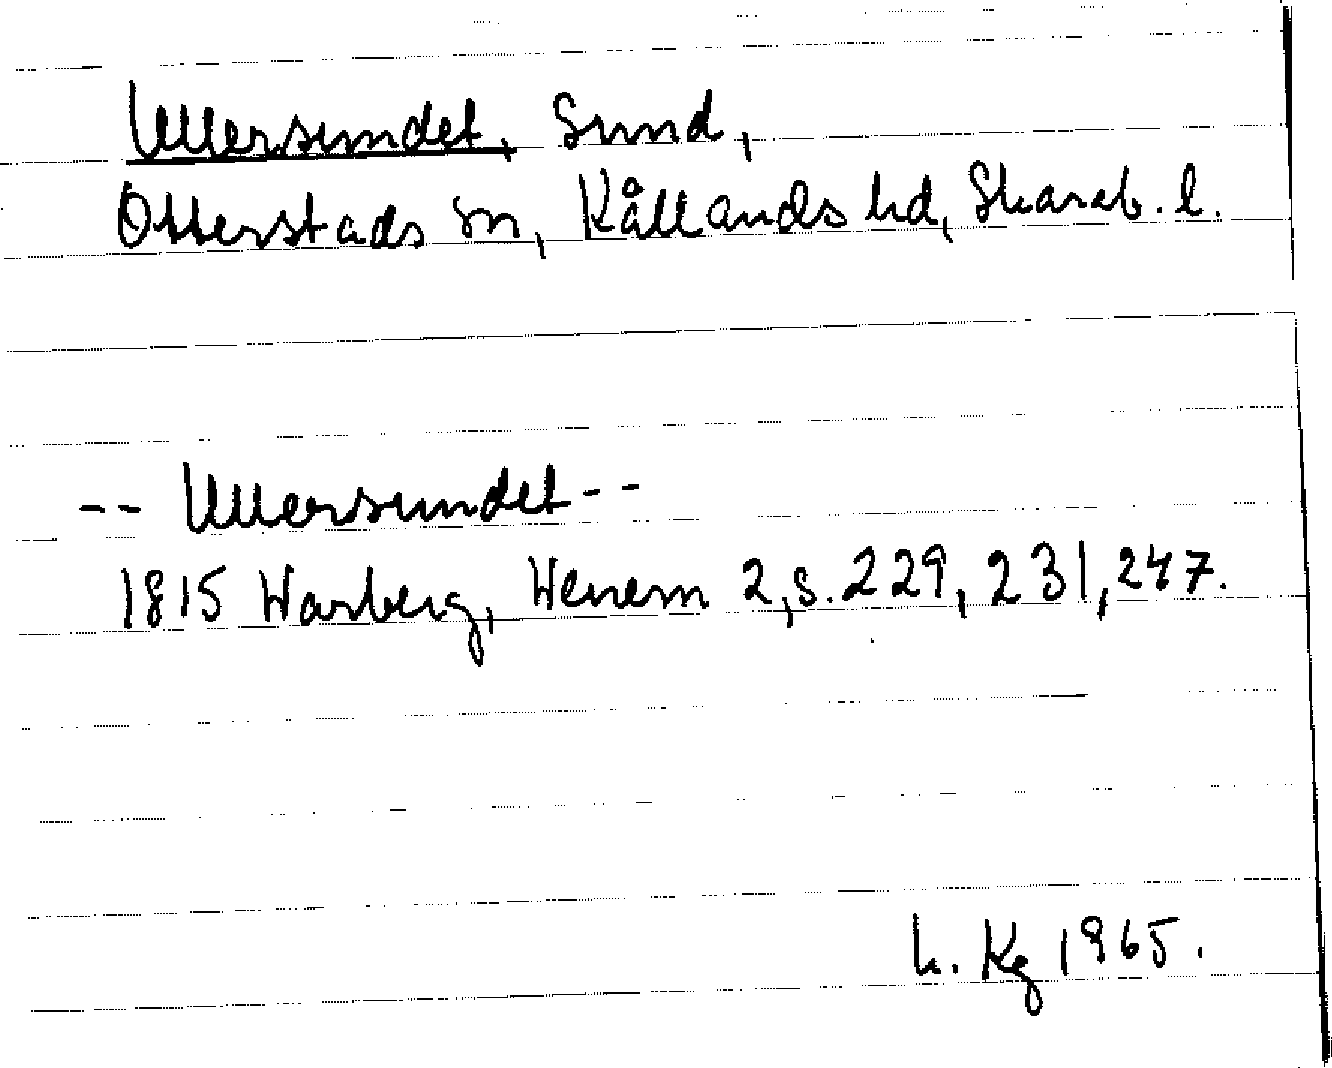 Ullersundet, Sund,
Otterstads sn, Kållands hd, Skarab. l.
-- Ullersundet --
1815 Warberg, Wenern 2, s. 229, 231, 247.
h. Kg 1965.